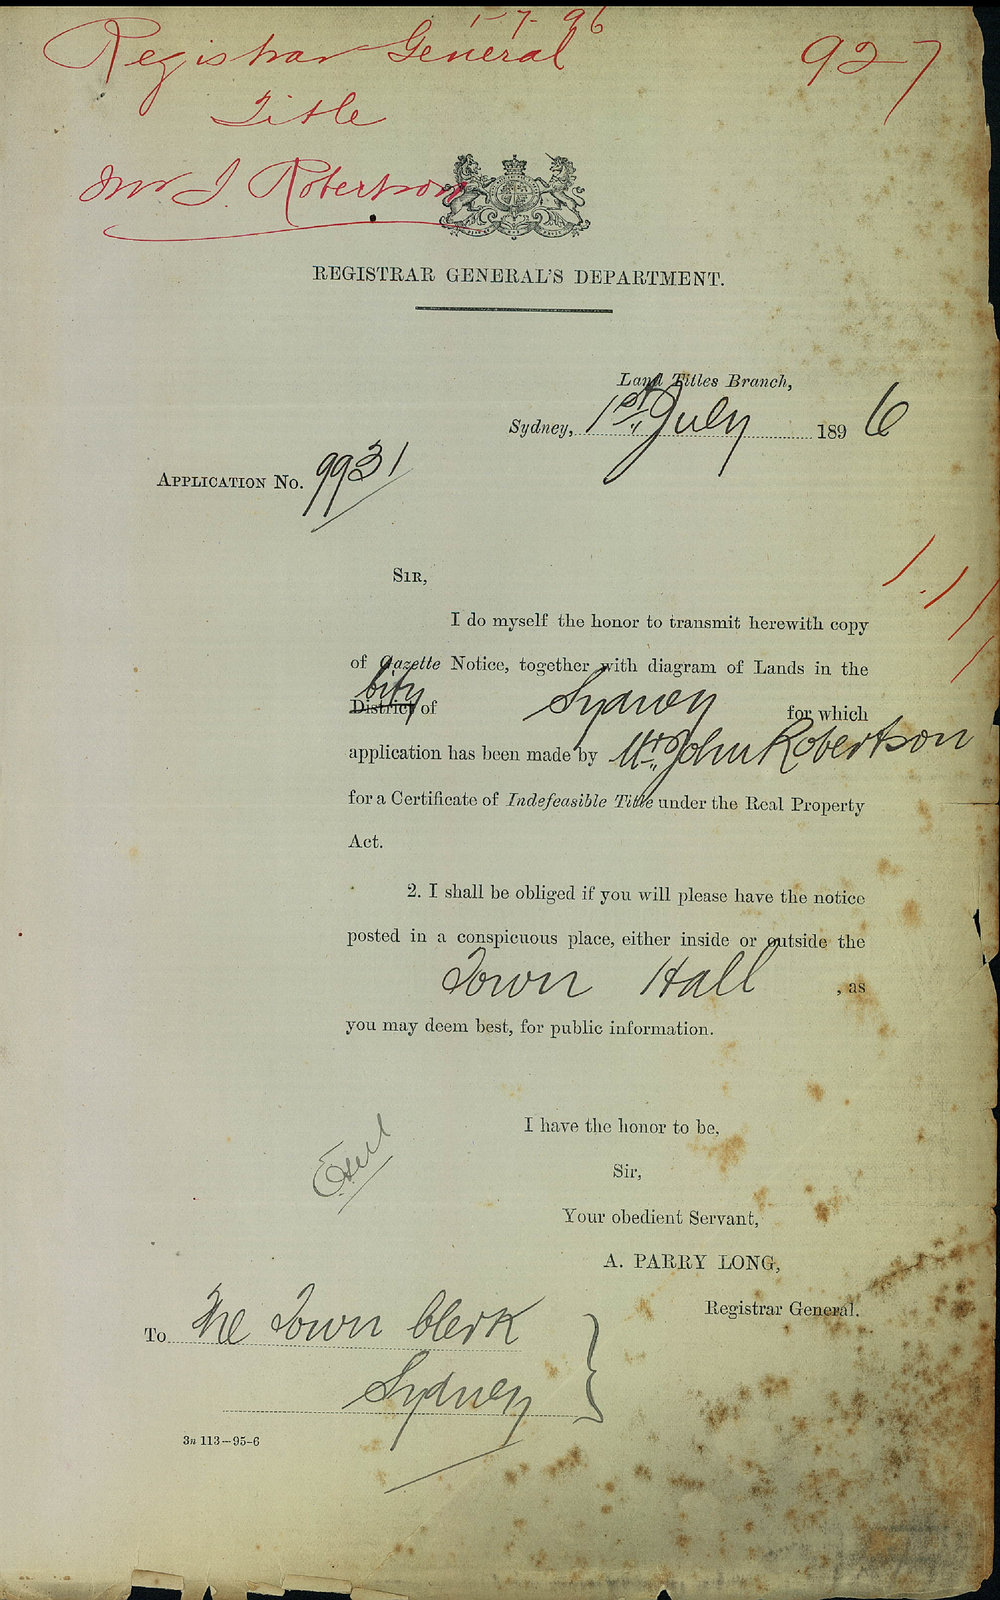 1-7-96
Registrar General
927
Title
Mr J. Robertson
REGISTRAR GENERAL'S DEPARTMENT.
Land Titles Branch,
Sydney, 1st July 1896
APPLICATION NO. 9931
SIR,
I do myself the honor to transmit herewith copy
of Gazette Notice, together with diagram of Lands in the
City
District of Sydney for which
application has been made by Mr. John Robertson
for a Certificate of Indefeasible Title under the Real Property
Act.
2. I shall be obliged if you will please have the notice
posted in a conspicuous place, either inside or outside the
Town Hall, as
you may deem best, for public information.
I have the honor to be,
Sir,
Your obedient Servant,
A. PARRY LONG,
Registrar General.
To The Town Clerk
Sydney
3n 113—95-6